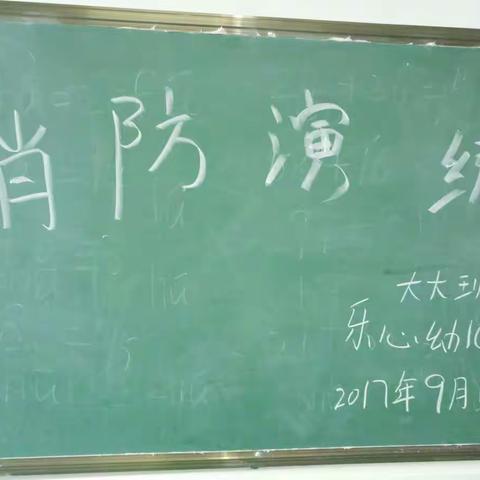 消防演练
大大班
乐心幼儿
2017年9月